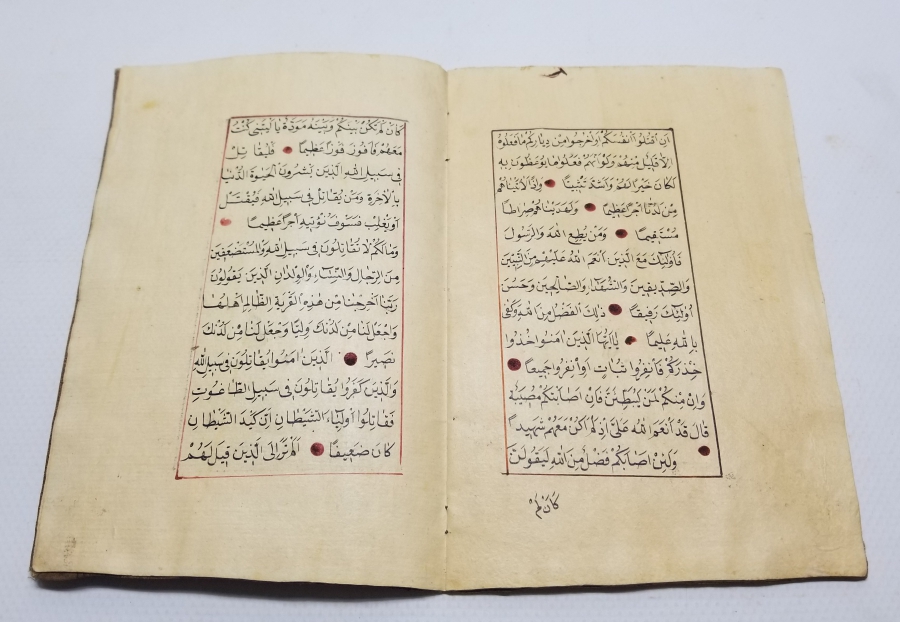 أن اقتلوا أنفسكم أو اخرجوا من دياركم ما فعلوه
إلا قليل منهم ولو أنهم فعلوا ما يوعظون به
لكان خيرا لهم وأشد تثبيتا وإذا لآتيناهم
من لدنا أجرا عظيما ولهديناهم صراطا
مستقيما ومن يطع الله والرسول
فأولئك مع الذين أنعم الله عليهم من النبيين
والصديقين والشهداء والصالحين وحسن
أولئك رفيقا ذلك الفضل من الله وكفى
بالله عليما ياأيها الذين امنوا خذوا
حذركم فانفروا ثبات أو انفروا جميعا
وإن منكم لمن ليبطئن فإن أصابتكم مصيبة
قال قد أنعم الله علي إذ لم أكن معهم شهيدا
ولئن أصابكم فضل من الله ليقولن
كان لم
كان لم تكن بينكم وبينه مودة ياليتني كنت
معهم فأفوز فوزا عظيما فليقاتل
في سبيل الله الذين يشرون الحيوة الدنيا
بالآخرة ومن يقاتل في سبيل الله فيقتل
أو يغلب فسوف نؤتيه أجرا عظيما
وما لكم لا تقاتلون في سبيل الله والمستضعفين
من الرجال والنساء والولدان الذين يقولون
ربنا أخرجنا من هذه القرية الظالم أهلها
واجعل لنا من لدنك وليا واجعل لنا من لدنك
نصيرا الذين امنوا يقاتلون في سبيل الله
والذين كفروا يقاتلون في سبيل الطاغوت
فقاتلوا أولياء الشيطان إن كيد الشيطان
كان ضعيفا ألم تر إلى الذين قيل لهم